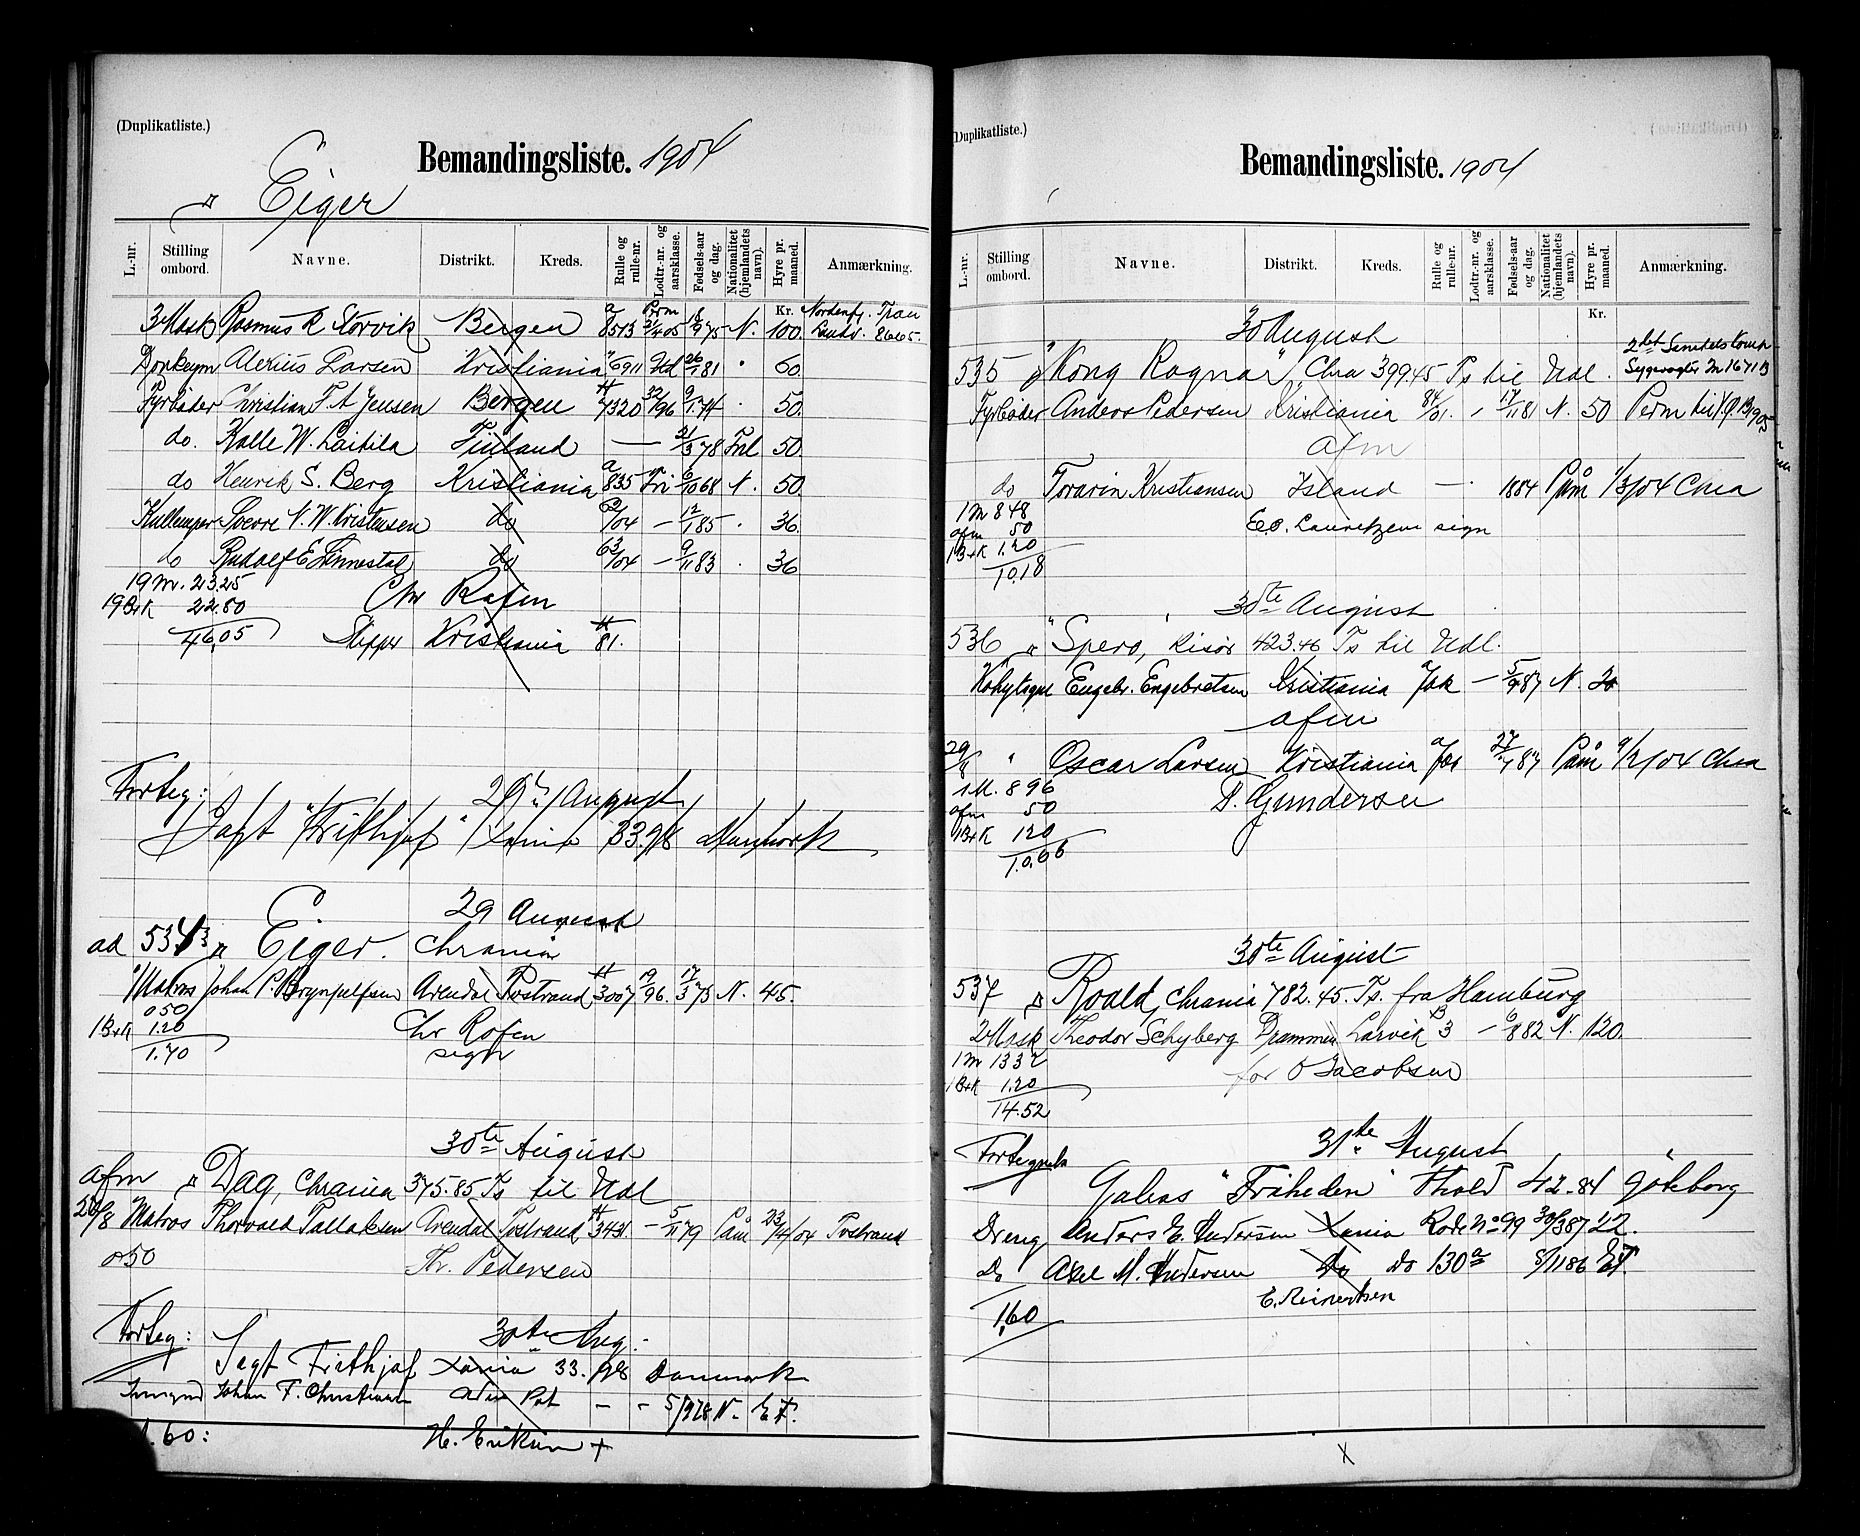 (Duplikatliste.)
Bemandingsliste. 1904
Eiger
L.-nr. Stilling ombord. Navne. Distrikt. Kreds. Rulle og rulle-nr. Lodtr.-nr. og aarsklasse. Fødsels-aar og dag. Nationalitet (hjemlandets navn). Hyre pr. maaned. Anmærkning.
Kr.
3 Mask Rasmus R Storvik Bergen a 8513 18/9 75 N. 100. Nordenfj. 8665.
Donkeym Alexius Larsen Kristiania 6911 26/1 81 " 60.
Fyrbøder Christian F. A Jensen Bergen 7320 32/96 9/1 74 . 50.
do. Kalle W. Laitila Finland — 21/3 78 Fnl 50.
do Henrik S. Berg Kristiania a 835 Fri 6/10 68 N. 50.
Kullemper Soevre N. W. Kristensen do 62/04 — 12/1 85 . 36.
do Rudolf E. do 63/04 — 9/11 83 . 36
19 M. 23.25
19 B+K 22.80
46.05
Chr Rafen
Skipper Kristiania 81.
Forteg: 29de August
Jagt "Frithjof" Xania 33.98 Danmark
29 August
ad 534 Eiger. Chrania
1/ Matros Johan P. Brynjulfsen Arendal Tvestrand 3007 19/96. 17/3 75 N. 45.
050
1 B+K 1.20
1.70
Chr Rafen
sign
30te August
afm Dag, Chrania 375.85 Ts til Udl
26/8 Matros Thorvald Tallaksen Arendal Tvestrand 3431 — 5/11 79 Påm 23/4/04 Tvestrand
050
Th. Pedersen
Forteg: 30te Aug:
Jagt Frithjof Xania 33.98 Danmark
Johan F. Christiansen — - 5/9 78 N. E F.
.60:
H. Eriksen +
(Duplikatliste.)
Bemandingsliste. 1904
L.-nr. Stilling ombord. Navne. Distrikt. Kreds. Rulle og rulle-nr. Lodtr.-nr. og aarsklasse. Fødsels-aar og dag. Nationalitet (hjemlandets navn). Hyre pr. maaned. Anmærkning.
Kr.
30 August
535 "Kong Ragnar", Chra 399.45 Ts til Udl.
Fyrbøder Anders Pedersen Kristiania 84/01. 17/11 81 N. 50
afm
do Torarin Kristiansen Island — 1884 Påm 1/3/04 Chra
1 M 848
afm 50
1 B+K 1.20
10.18
E.B. Lauretzen sign
30te August
536 "Spero, Risør 423.46 Ts til Udl.
Engebr. Engebretsen Kristiania — 5/9 87 N. 20
afm
29/8 " Oscar Larsen Kristiania 87 Påm 04 Chra
1 M. 896
afm 50
1 B+K 120
10.66
S. Gundersen
30te August
537 Roald, Chrania 782.45. Ts. fra Hamburg
2 Mask Theodor Schyberg Drammen Larvik B 3 — 6/8 82 N. 120.
1 M 1332
1 B+K 1.20
14.52
for O Jacobsen
31te August
Galeas "Friheden" Thold 42.84 Gøteborg
Dreng Anders E. Andersen Xania Rode No 99 30/3 87 22.
Do Axel M. Andersen Do Do 130a 8/11 86 E F.
E. Reinertsen
1.60
X